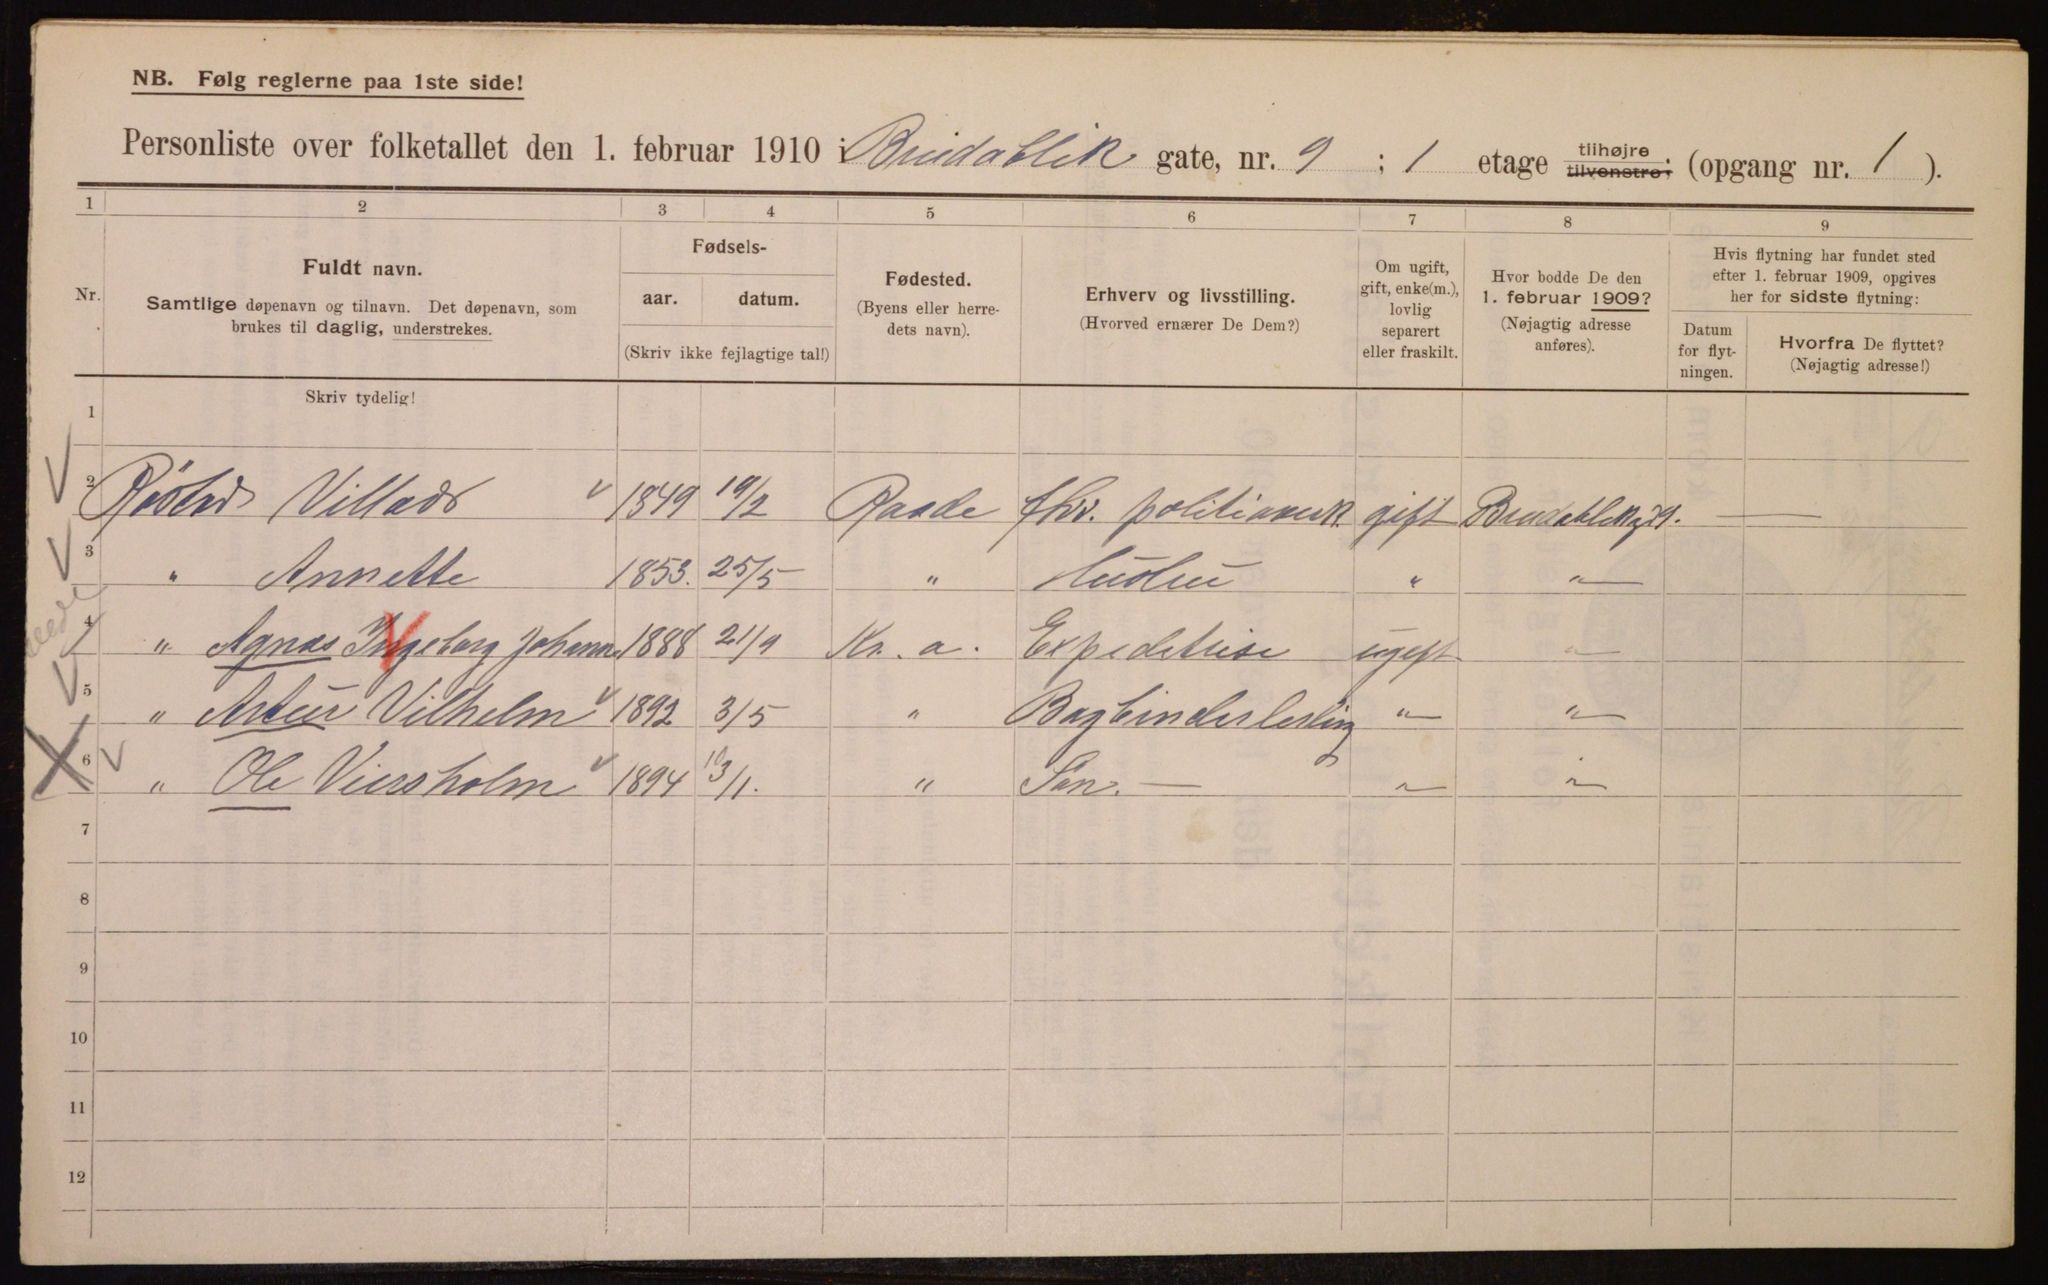 NB. Følg reglerne paa 1ste side!
Personliste over folketallet den 1. februar 1910 i Breidablik gate, nr. 9 ; 1 etage tilhøjre tilvenstre; (opgang nr. 1 ).
1 2 3 4 5 6 7 8 9
Nr.
Fuldt navn.
Samtlige døpenavn og tilnavn. Det døpenavn, som
brukes til daglig, understrekes.
Skriv tydelig!
Fødsels-
aar. datum.
(Skriv ikke fejlagtige tal!)
Fødested.
(Byens eller herre-
dets navn).
Erhverv og livsstilling.
(Hvorved ernærer De Dem?)
Om ugift,
gift, enke(m.),
lovlig
separert
eller fraskilt.
Hvor bodde De den
1. februar 1909?
(Nøjagtig adresse
anføres).
Hvis flytning har fundet sted
efter 1. februar 1909, opgives
her for sidste flytning:
Datum
for flyt-
ningen.
Hvorfra De flyttet?
(Nøjagtig adresse!)
1
2 Røstad Villads 1849 19/2 Raade fhv. gift —
3 " Annette 1853. 25/5 " Hustru " "
4 " Agnes Ingeborg Johanne 1888 21/9 Kr. a. Expeditrise ugift "
5 " Artur Vilhelm 1892 3/5 " Bogbinderlerling " "
6 " Ole Viersholm 1894 13/1. " Søn. — " "
7
8
9
10
11
12